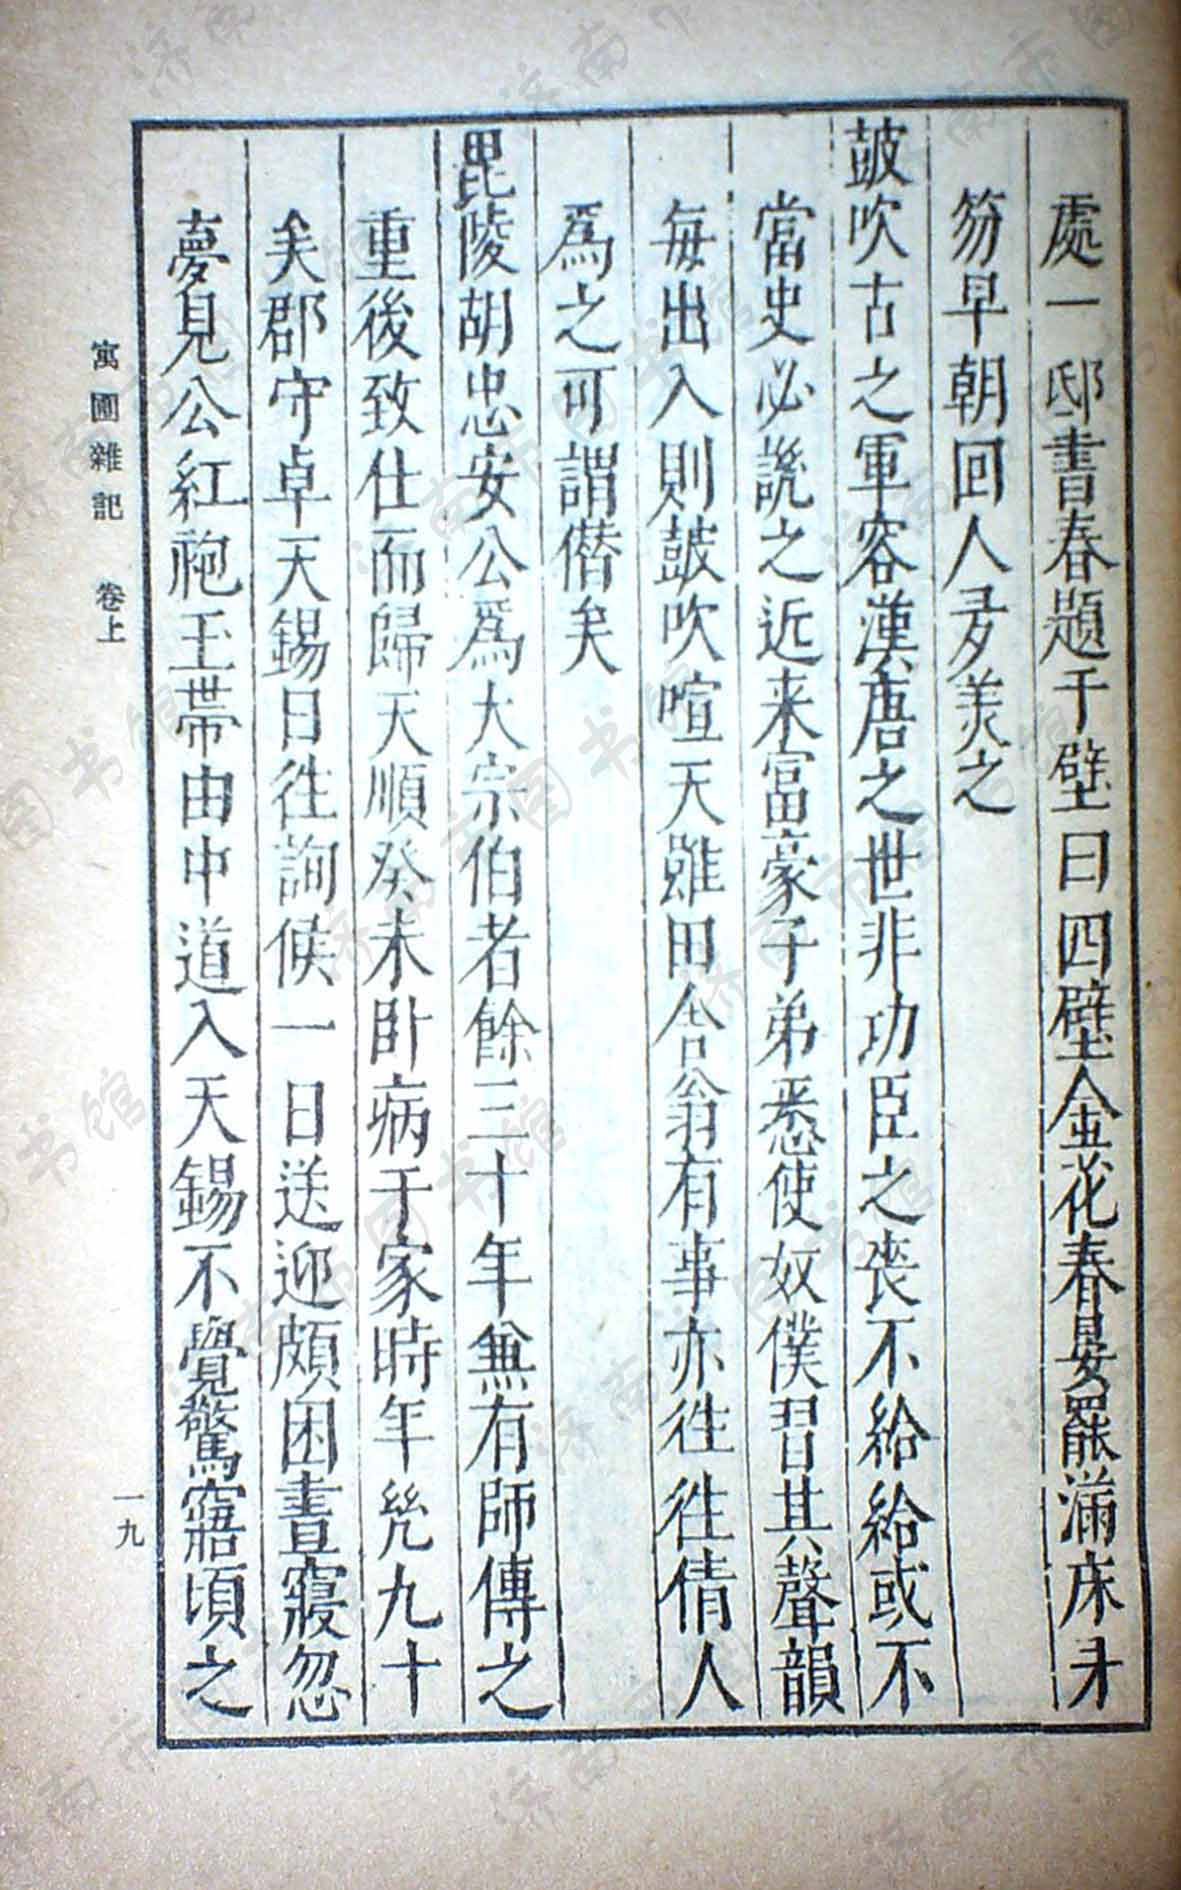 處一邸書春題于壁曰四壁金花春晏罷滿床牙
笏早朝回人多羨之
鼓吹古之軍容漢唐之世非功臣之喪不給給或不
當史必譏之近来富豪子弟悉使奴僕習其聲韻
每出入則鼓吹喧天雖田舍翁有事亦往往倩人
爲之可謂僭矣
毘陵胡忠安公爲大宗伯者餘三十年兼有師傅之
重後致仕而歸天順癸未卧病于家時年幾九十
矣郡守卓天錫日往詢候一日送迎頗困晝寢忽
夢見公紅袍玉帶由中道入天錫不覺驚寤頃之
寓圃雜記 卷上
一九
济南市图书馆